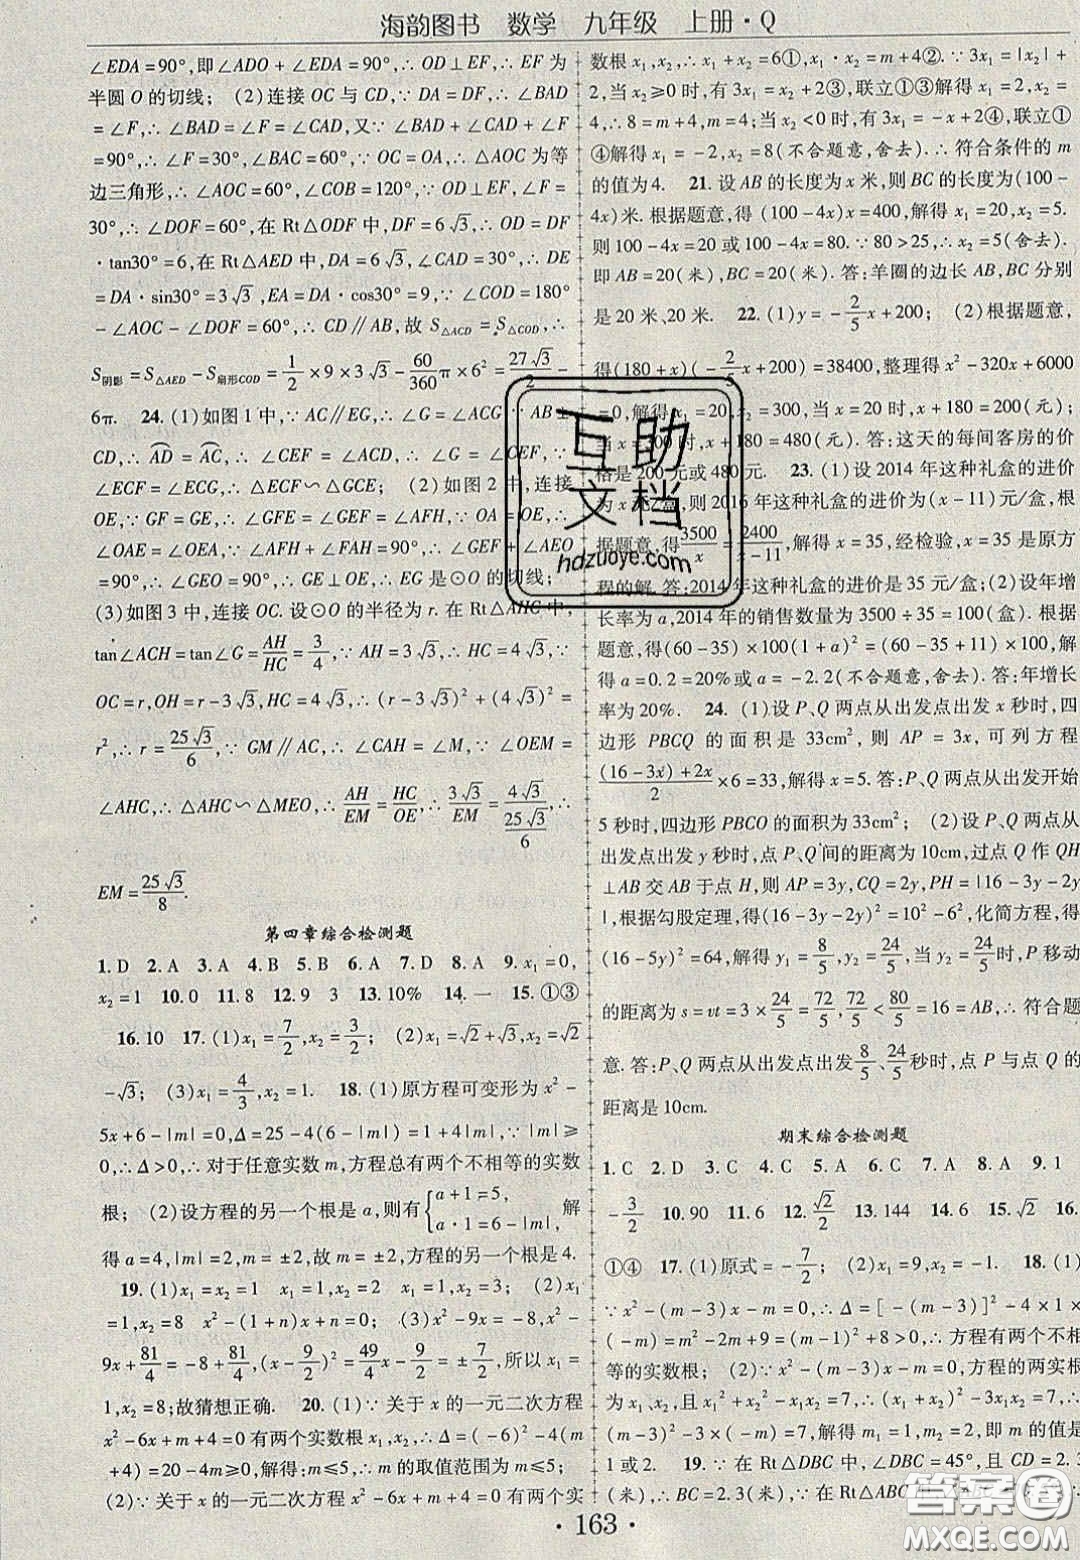 海韵图书 数学 九年级 上册·Q
∠EDA=90°,即∠ADO+∠EDA=90°,∴OD⊥EF,∴EF为
半圆O的切线；(2)连接OC与CD,∵DA=DF,∴∠BAD
=∠F,∴∠BAD=∠F=∠CAD,又∵∠BAD+∠CAD+∠F
=90°,∴∠F=30°,∠BAC=60°,∵OC=OA,∴△AOC为等
边三角形,∴∠AOC=60°,∠COB=120°,∵OD⊥EF,∠F=
30°,∴∠DOF=60°,在Rt△ODF中,DF=6√3,∴OD=DF
·tan30°=6,在Rt△AED中,DA=6√3,∠CAD=30°,∴DE
=DA·sin30°=3√3,EA=DA·cos30°=9,∵∠COD=180°
-∠AOC-∠DOF=60°,∴CD∥AB,故S△ACD=S△COD,∴
S阴影=S△AED-S扇形COD=1/2×9×3√3-60/360π×6²=27√3/2-
6π. 24.(1)如图1中,∵AC∥EG,∴∠G=∠ACG,∵AB⊥
CD,∴AD=AC,∴∠CEF=∠ACD,∴∠G=∠CEF,∵
∠ECF=∠ECG,∴△ECF∽△GCE；(2)如图2中,连接
OE,∵GF=GE,∴∠GFE=∠GEF=∠AFH,∵OA=OE,∴
∠OAE=∠OEA,∵∠AFH+∠FAH=90°,∴∠GEF+∠AEO
=90°,∴∠GEO=90°,∴GE⊥OE,∴EG是⊙O的切线；
(3)如图3中,连接OC.设⊙O的半径为r.在Rt△AHC中,
tan∠ACH=tan∠G=AH/HC=3/4,∵AH=3√3,∴HC=4√3,∵
OC=r,OH=r-3√3,HC=4√3,∴(r-3√3)²+(4√3)²=
r²,∴r=25√3/6,∵GM∥AC,∴∠CAH=∠M,∵∠OEM=
∠AHC,∴△AHC∽△MEO,∴AH/EM=HC/OE,∴3√3/EM=4√3/(25√3/6),∴
EM=25√3/8.
第四章综合检测题
1.D 2.A 3.A 4.B 5.B 6.A 7.D 8.A 9.x₁=0,
x₂=1 10.0 11.8 12.9 3 13.10% 14.一 15.①③
16.10 17.(1)x₁=7/2,x₂=3/2；(2)x₁=√2+√3,x₂=√2
-√3；(3)x₁=4/3,x₂=1. 18.(1)原方程可变形为x²-
5x+6-|m|=0,∴Δ=25-4(6-|m|)=1+4|m|,∵|m|≥
0,∴Δ>0,∴对于任意实数m,方程总有两个不相等的实数
根；(2)设方程的另一个根是a,则有{a+1=5,a·1=6-|m|,解
得a=4,|m|=2,m=±2,故m=±2,方程的另一个根是4.
19.(1)x₁=x₂=1 x₁=1,x₂=2 x₁=1,x₂=3；(2)x₁
=1,x₂=8 x²-9x+8=0；(3)x²-9x=-8,x²-
9x+81/4=-8+81/4,(x-9/2)²=49/4 x-9/2=±7/2,所以x₁=
1,x₂=8;故猜想正确. 20.(1)∵关于x的一元二次方程
x²-6x+m+4=0有两个实数根x₁,x₂,∴Δ=(-6)²-4(m
+4)=20-4m≥0,解得:m≤5,∴m的取值范围为m≤5；
(2)∵关于x的一元二次方程x²-6x+m+4=0有两个实
数根x₁,x₂,∴x₁+x₂=6①,x₁·x₂=m+4②.∵3x₁=|x₂|+
2,当x₂≥0时,有3x₁=x₂+2③,联立①③解得x₁=2,x₂=
4,∴8=m+4,m=4;当x₂<0时,有3x₁=-x+2④,联立①
④解得x₁=-2,x₂=8(不合题意,舍去).∴符合条件的m
的值为4. 21.设AB的长度为x米,则BC的长度为(100-
4x)米.根据题意,得(100-4x)x=400,解得x₁=20,x₂=5.
则100-4x=20或100-4x=80.∵80>25,∴x₂=5(舍去).
即AB=20(米),BC=20(米).答:羊圈的边长AB,BC分别
是20米、20米. 22.(1)y=-2/5x+200；(2)根据题意,
得(180+x)(-2/5x+200)=38400,整理得x²-320x+6000
=0,解得x₁=20,x₂=300,当x=20时,x+180=200(元);
当x=300时,x+180=480(元).答:这天的每间客房的价
格是200元或480元. 23.(1)设2014年这种礼盒的进价
为x元/盒,则2016年这种礼盒的进价为(x-11)元/盒,根
据题意,得3500/x=2400/(x-11),解得x=35,经检验,x=35是原方
程的解.答:2014年这种礼盒的进价是35元/盒；(2)设年增
长率为a,2014年的销售数量为3500÷35=100(盒).根据
题意,得(60-35)×100(1+a)²=(60-35+11)×100,解
得a=0.2=20%或a=-2.2(不合题意,舍去).答:年增长
率为20%. 24.(1)设P、Q两点从出发点出发x秒时,四
边形PBCQ的面积是33cm²,则AP=3x,可列方程
(16-3x)+2x/2×6=33,解得x=5.答:P、Q两点从出发开始
5秒时,四边形PBCO的面积为33cm²；(2)设P、Q两点从
出发点出发y秒时,点P、Q间的距离为10cm,过点Q作QH
⊥AB交AB于点H,则AP=3y,CQ=2y,PH=|16-3y-2y
|,根据勾股定理,得(16-3y-2y)²=10²-6²,化简方程,得
(16-5y)²=64,解得y₁=8/5,y₂=24/5,当y₂=24/5时,P移动
的距离为s=vt=3×24/5=72/5,72/5<80/5=16=AB,∴符合题
意.答:P、Q两点从出发点出发8/5、24/5秒时,点P与点Q的
距离是10cm.
期末综合检测题
1.C 2.D 3.C 4.C 5.A 6.C 7.A 8.A 9.1
-3/2 10.90 11.6 12.√2/2 13.144 14.6 15.√2 16.
①④ 17.(1)原式=-7/2；(2)x₁=9,x₂=-1. 18.(1)
∵x²-(m-3)x-m=0,∴Δ=[-(m-3)]²-4×1×
(-m)=m²-2m+9=(m-1)²+8>0,∴方程有两个不相
等的实数根；(2)∵x²-(m-3)x-m=0,方程的两实根
为x₁、x₂,且x₁²+x₂²-x₁x₂=7,∴(x₁+x₂)²-3x₁x₂=7,∴
(m-3)²-3×(-m)=7,解得m₁=1,m₂=2,即m的值是
1或2. 19.∵在Rt△DBC中,∠DBC=45°,且CD=2.3
(米),∴BC=2.3(米),∵在Rt△ABC中
·163·
互助
文档
hdzuoye.com
答案圈
MXQE.COM